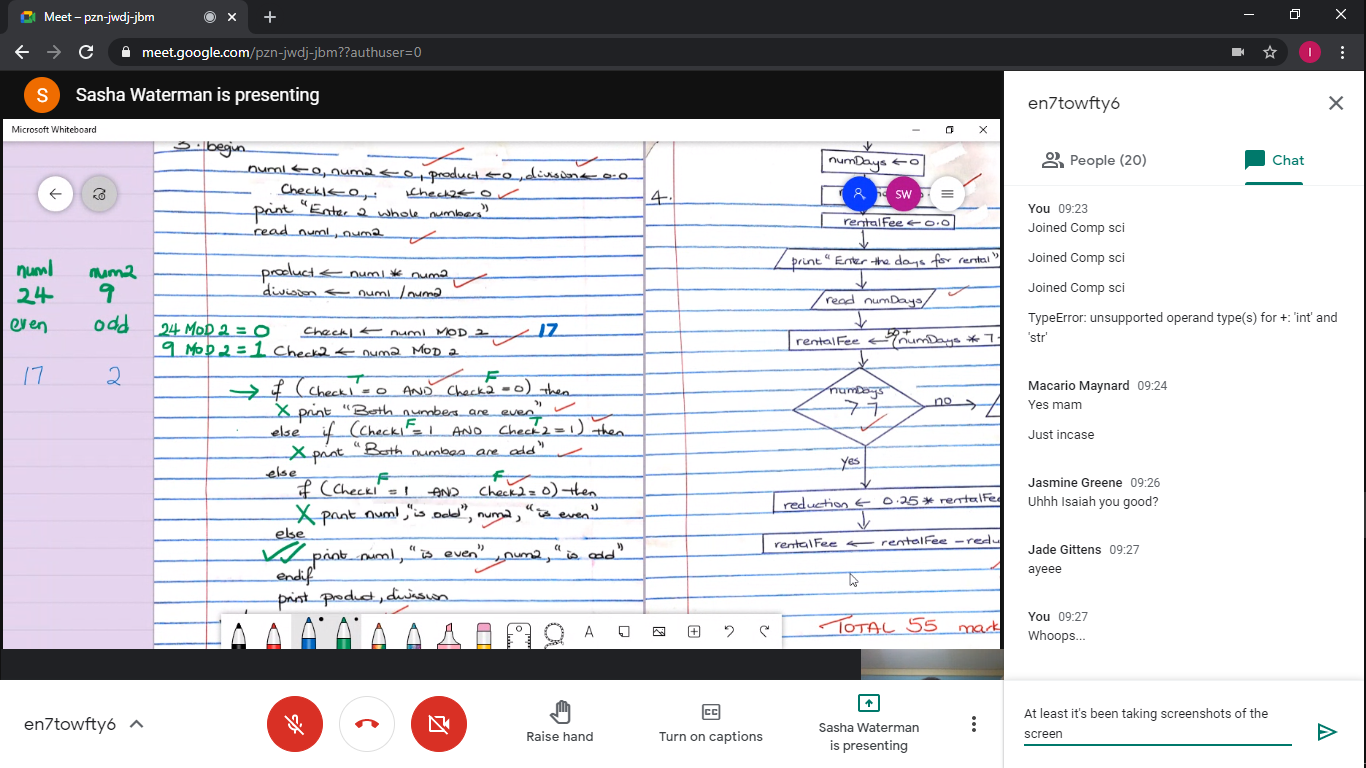 Meet – pzn-jwdj-jbm
meet.google.com/pzn-jwdj-jbm??authuser=0
I
S
Sasha Waterman is presenting
Microsoft Whiteboard
3. begin
num1 ← 0, num2 ← 0, product ← 0, division ← 0.0
Check1 ← 0, Check2 ← 0
print "Enter 2 whole numbers"
read num1, num2
product ← num1 * num2
division ← num1 / num2
num1 num2
24 9
even odd
17 2
24 MOD 2 = 0 Check1 ← num1 MOD 2 17
9 MOD 2 = 1 Check2 ← num2 MOD 2
T F
→ if (Check1 = 0 AND Check2 = 0) then
X print "Both numbers are even"
F T
else if (Check1 = 1 AND Check2 = 1) then
X print "Both numbers are odd"
else
F F
if (Check1 = 1 AND Check2 = 0) then
X print num1, "is odd", num2, "is even"
else
print num1, "is even", num2, "is odd"
endif
print product, division
4.
numDays ← 0
SW
rentalFee ← 0.0
print "Enter the days for rental"
read numDays
50 +
rentalFee ← (numDays * 7
numDays
> 7
no
yes
reduction ← 0.25 * rentalFee
rentalFee ← rentalFee - redu
TOTAL 55 mark
A
en7towfty6
People (20)
Chat
You 09:23
Joined Comp sci
Joined Comp sci
Joined Comp sci
TypeError: unsupported operand type(s) for +: 'int' and
'str'
Macario Maynard 09:24
Yes mam
Just incase
Jasmine Greene 09:26
Uhhh Isaiah you good?
Jade Gittens 09:27
ayeee
You 09:27
Whoops...
At least it's been taking screenshots of the
screen
en7towfty6
Raise hand
CC
Turn on captions
Sasha Waterman
is presenting